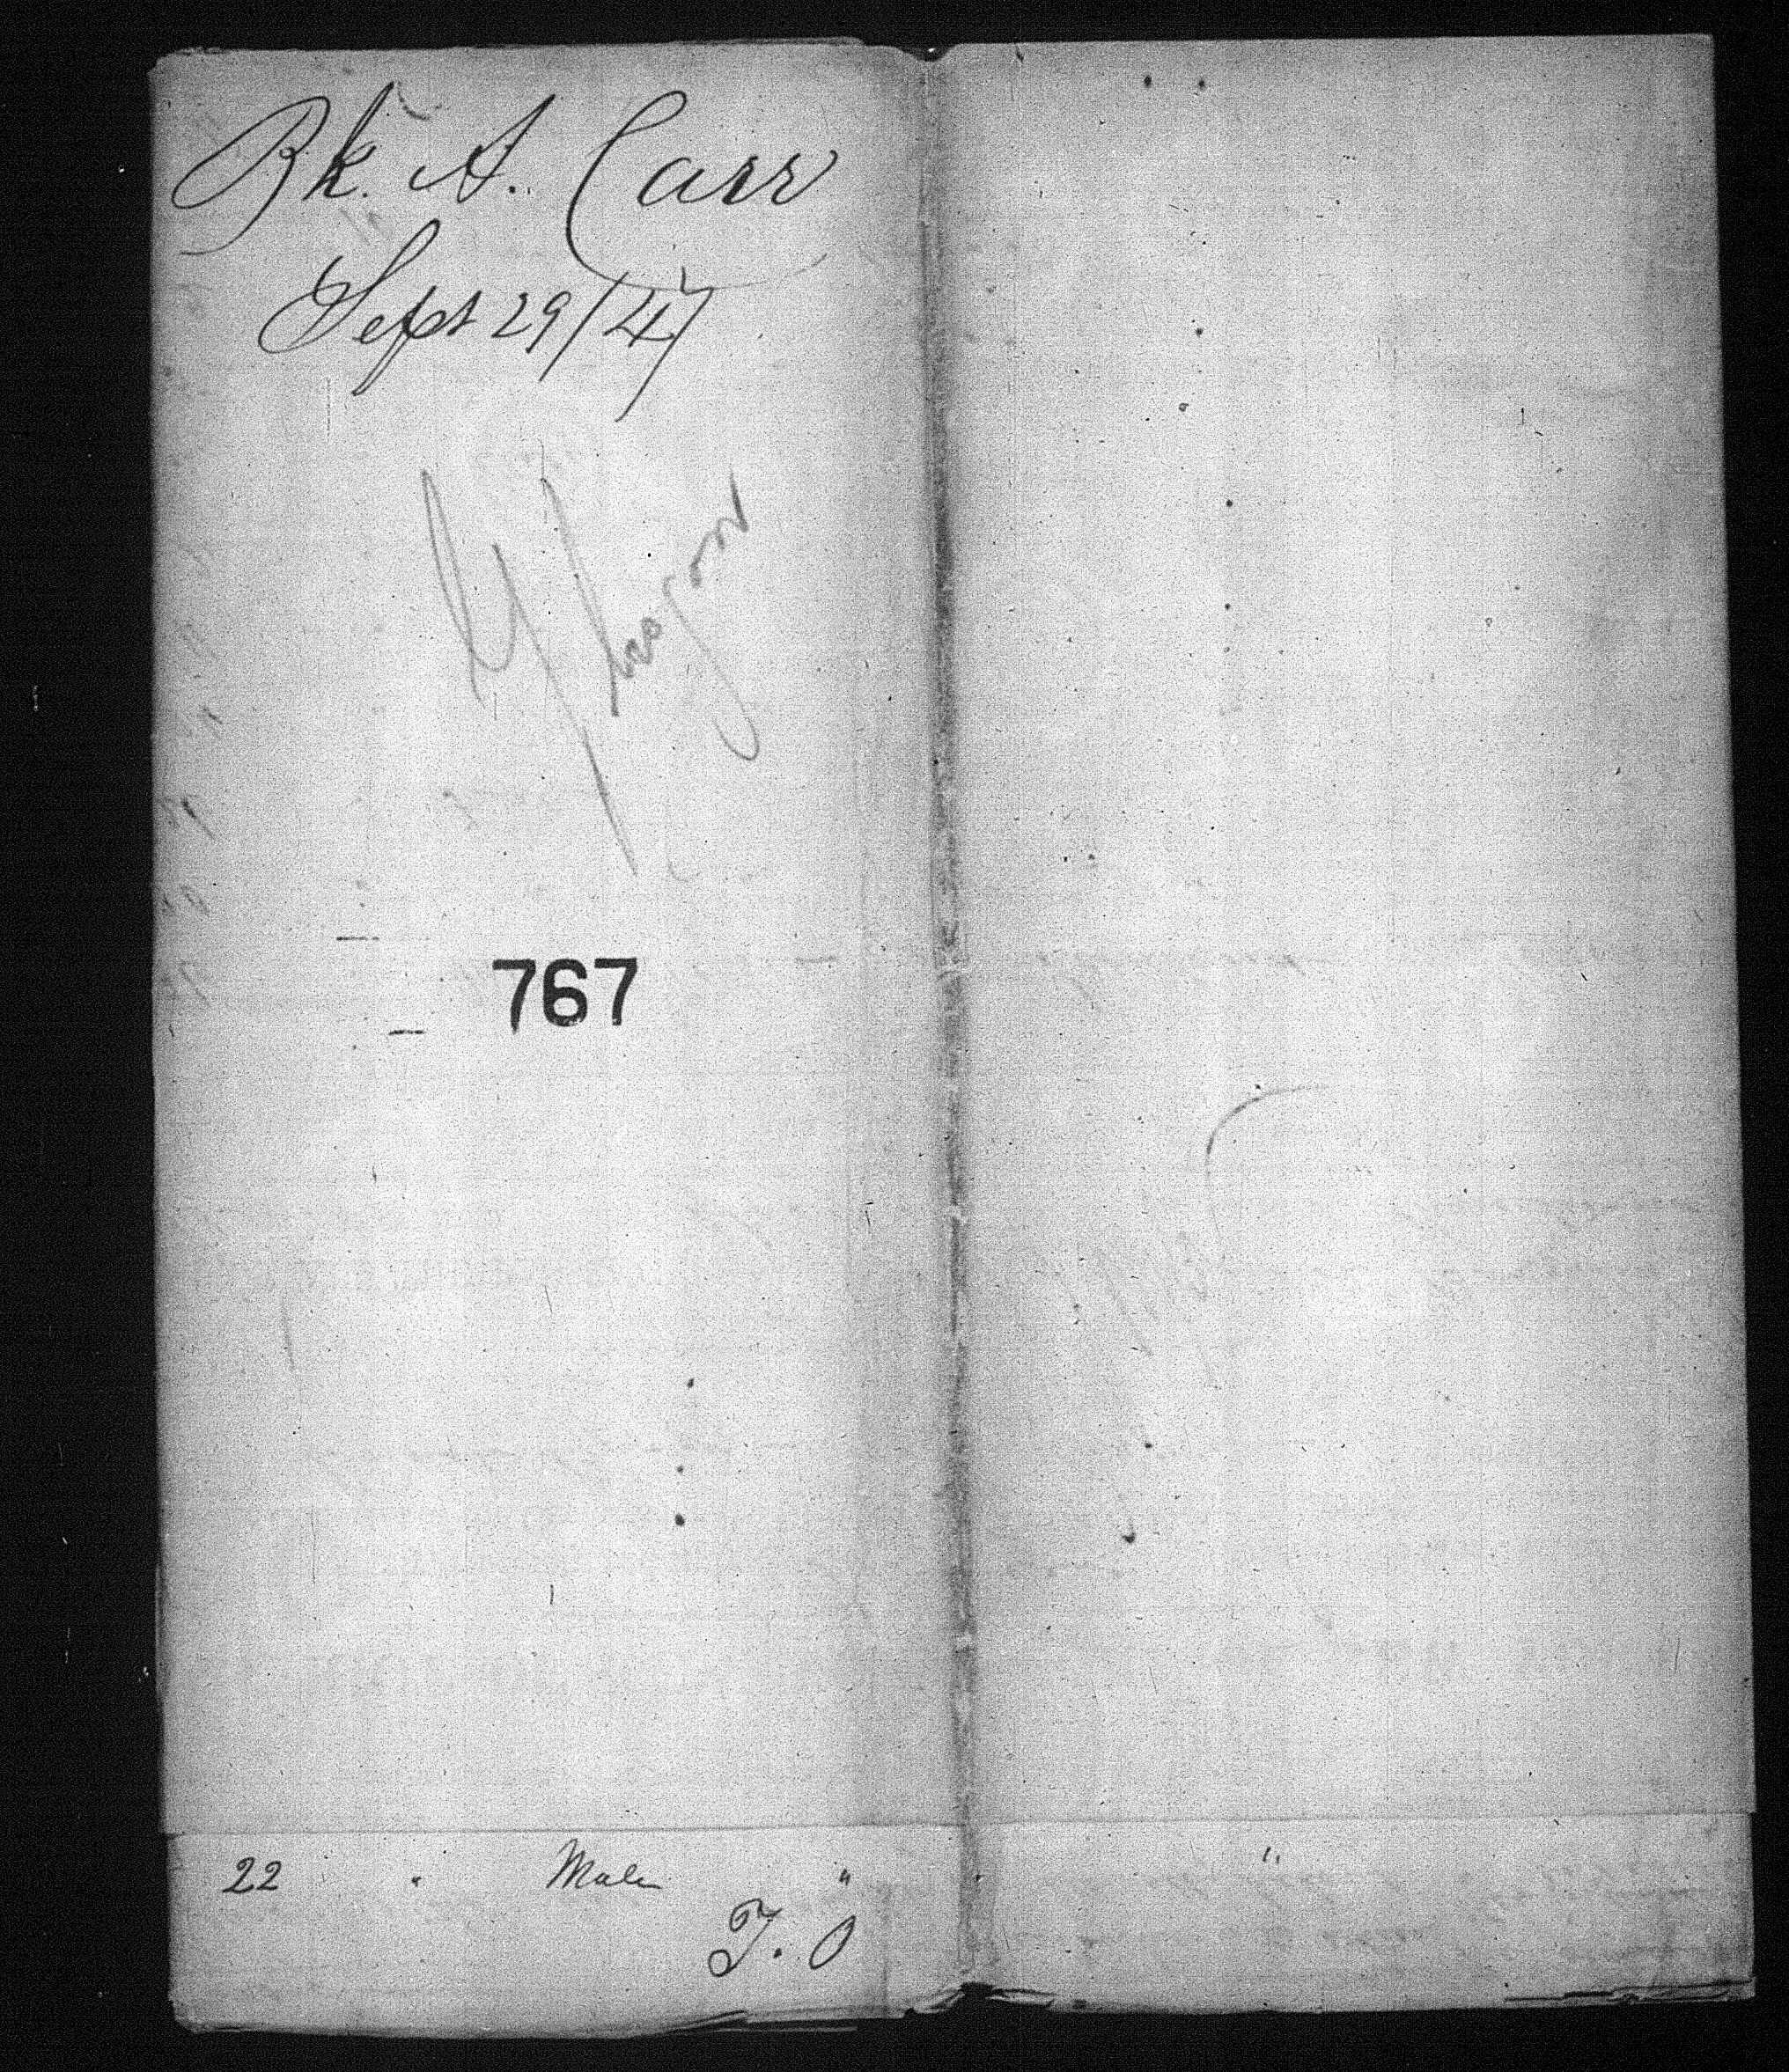 Bk. A. Carr
Sept 29/47
767
22 " Male " "
T. O